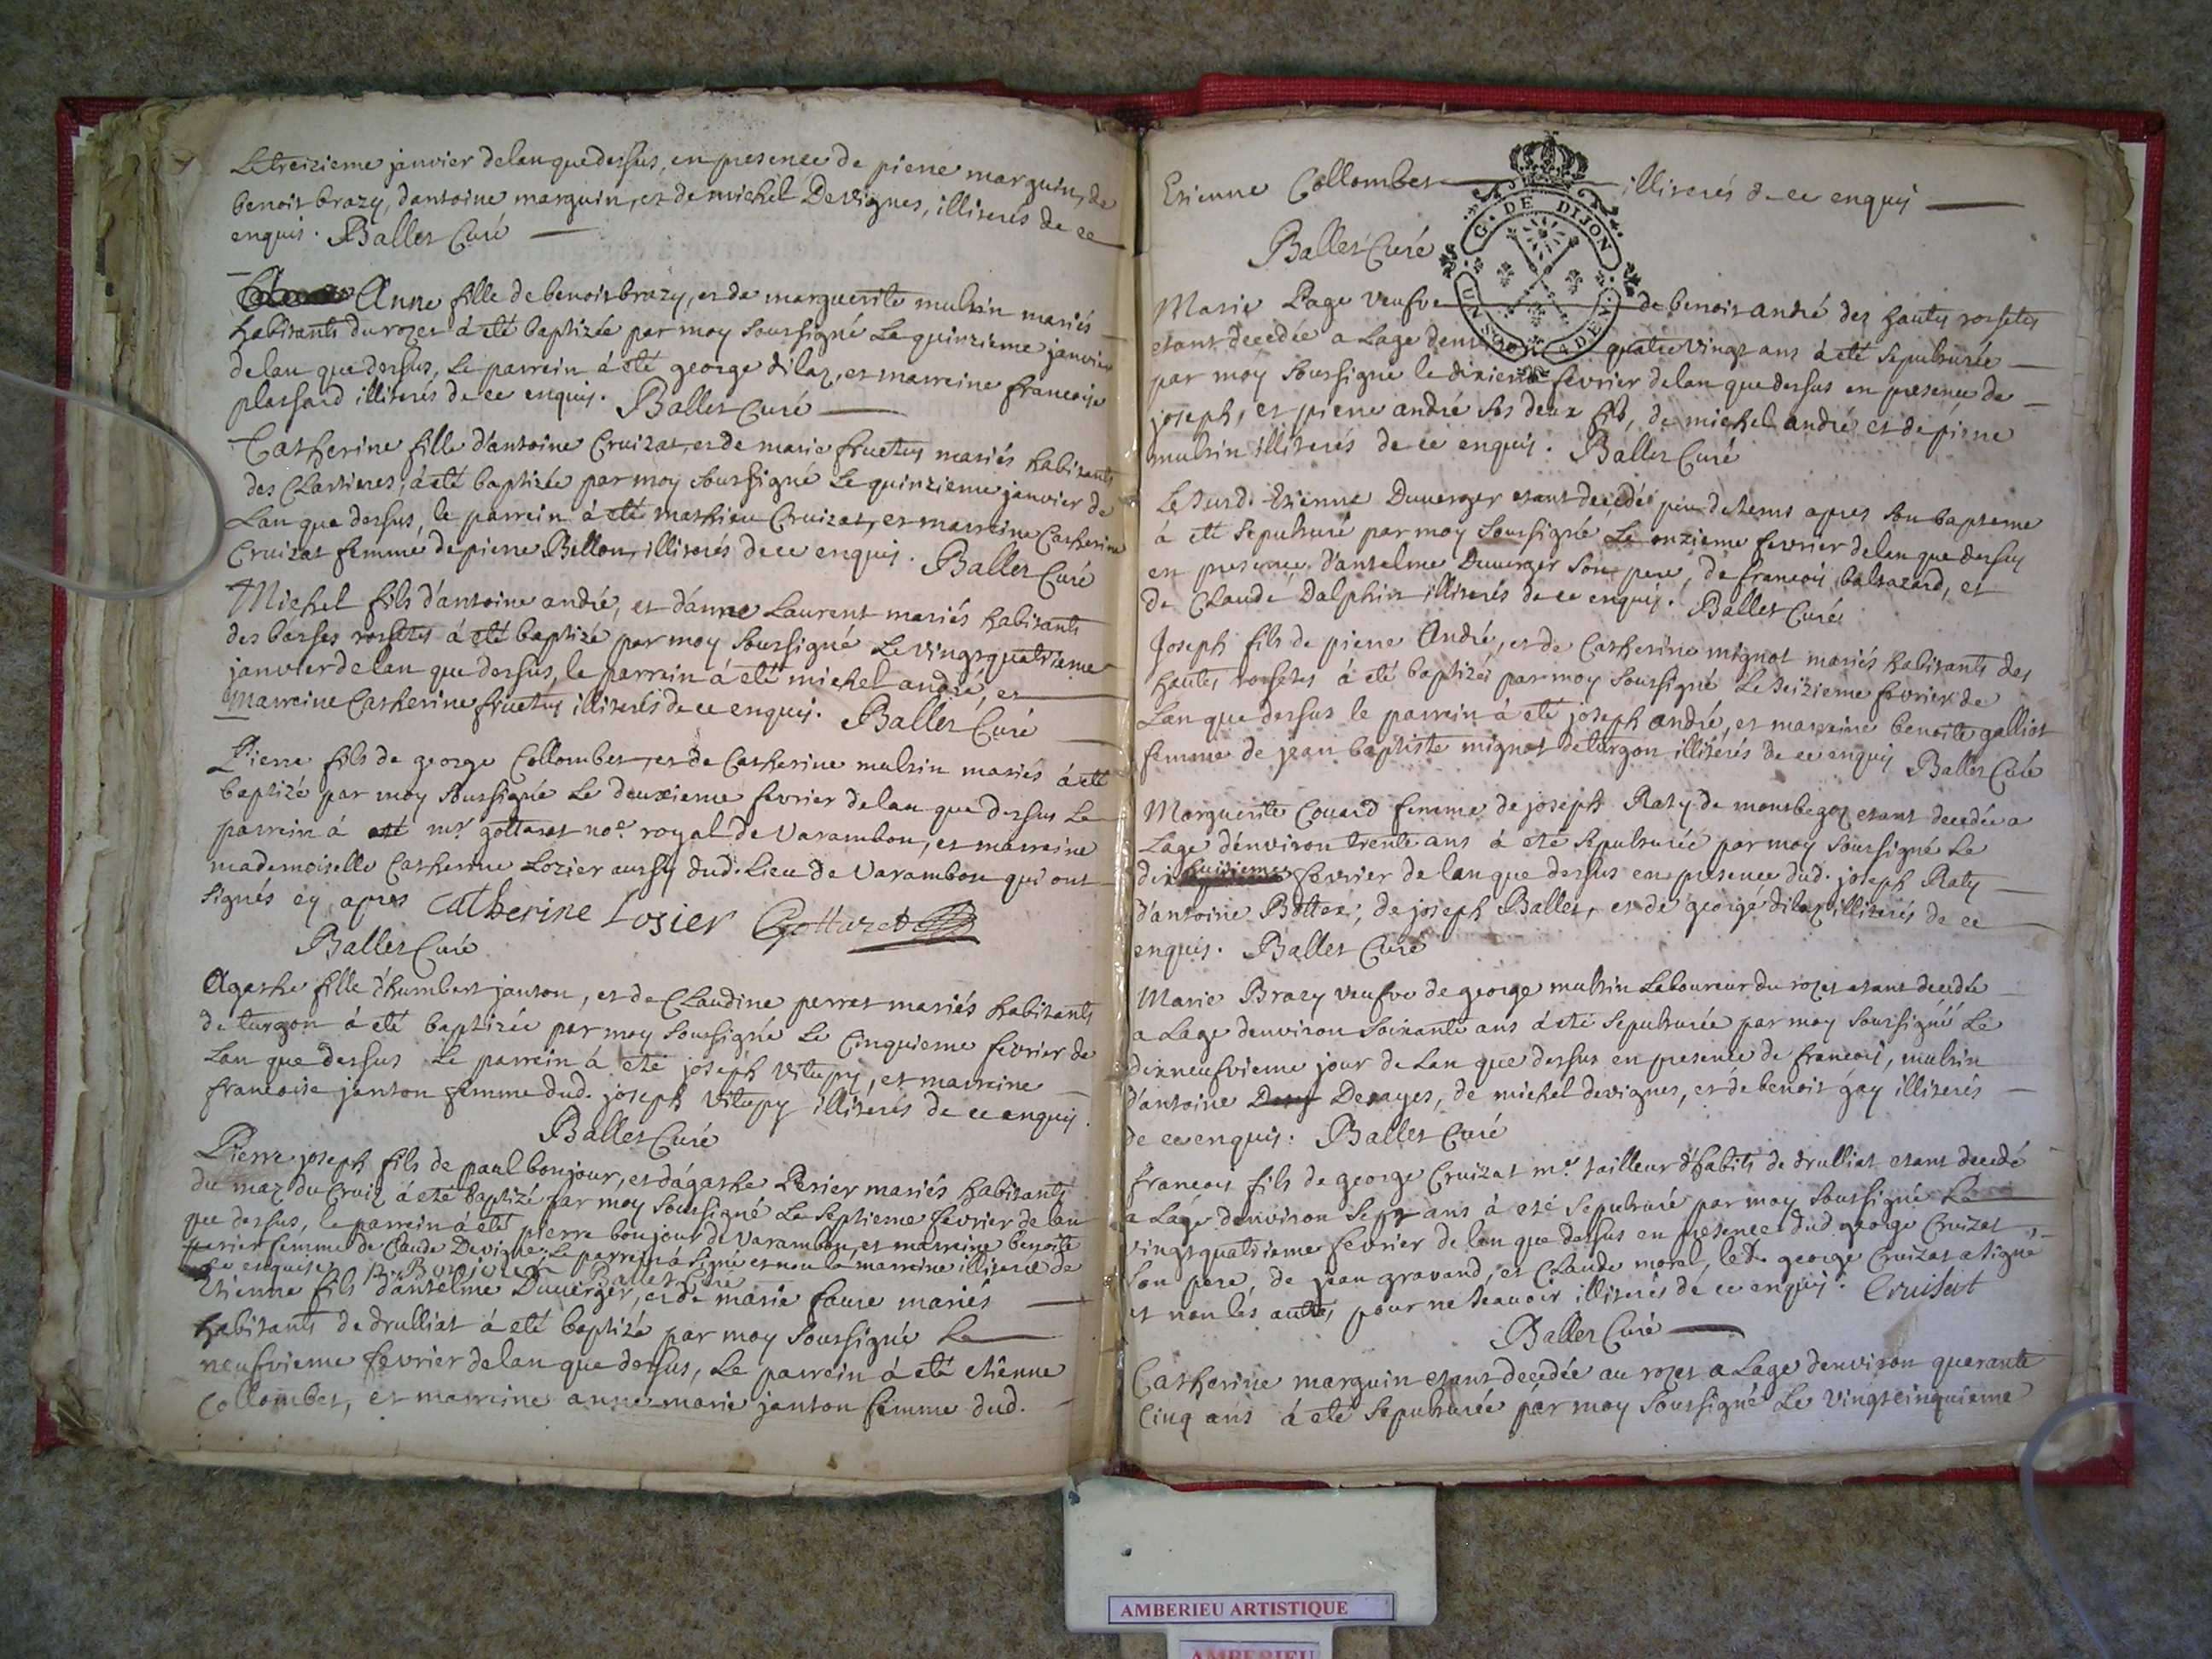 Le treizieme janvier de lan que dessus, en presence de pierre marguin, de
benoit brazy, dantoine marguin, et de michel Devignes, illiterés de ce
enquis. Ballet Curé
Anne fille de benoit brazy, et de marguerite multin mariés
habitants du rozet á eté baptizée par moy Soussigné Le quinzieme janvier
de lan que dessus, Le parrein á eté george dilaz, et marreine francoise
plassard illiterés de ce enquis. Ballet Curé
Catherine fille d'antoine Cruizat, et de marie fructus mariés habitants
des Clartieres, á eté baptizée par moy Soussigné Le quinzieme janvier de
Lan que dessus, le parrein á eté mathieu Cruizat, et marreine Catherine
Cruizat femme de pierre Billon, illiterés de ce enquis. Ballet Curé
Michel fils d'antoine andré, et d'anne Laurent mariés habitants
des basses rossetes á eté baptizé par moy Soussigné Le vingtquatrieme
janvier de lan que dessus, le parrein á eté michel andré, et
marreine Catherine fructus illiterés de ce enquis. Ballet Curé
Pierre fils de george Collombet, et de Catherine multin mariés á eté
baptizé par moy Soussigné Le deuxieme fevrier de lan que dessus Le
parrein á eté mr. gottaret nore. royal de Varambon, et marreine
mademoiselle Catherine Lozier aussy dud. Lieu de Varambon qui ont
Signés cy apres Catherine Losier Gottaret
Ballet Curé
Agathe fille d'humbert janton, et de Claudine perret mariés habitants
de turgon á eté baptizée par moy Soussigné Le Cinquieme fevrier de
Lan que dessus Le parrein á eté joseph Vitupy, et marreine
francoise janton femme dud. joseph Vitupy illiterés de ce enquis.
Ballet Curé
Pierre joseph fils de paul bonjour, et d'agathe Perier mariés habitants
du maz du Cruiz á eté baptizé par moy Soussigné Le Septieme fevrier de lan
que dessus, le parrein á eté pierre bonjour de Varambon, et marreine benoite
perier femme de Claude Devigne; Le parrein á Signé et non la marreine illiterée de
ce enquise. P. Bonjour Ballet Curé
Etienne fils d'anselme Duverger, et de marie faure mariés
habitants de drulliat á eté baptizé par moy Soussigné Le
neufvieme fevrier de lan que dessus, Le parrein á eté etienne
Collombet, et marreine anne marie janton femme dud.
Etienne Collombet illiterés de ce enquis
G. DE DIJON
Ballet Curé
Marie Page veufve de benoit andré des hautes rossetes
etant decedée a Lage denviron quatre Vingt ans á eté Sepulturée
par moy Soussigné le dixieme fevrier de lan que dessus en presence de
joseph, et pierre andré Ses deux fils, de michel andré et de pierre
multin illiterés de ce enquis. Ballet Curé
Le Susd. Etienne Duverger etant decedé peu de tems apres Son bapteme
á eté Sepulturé par moy Soussigné Le onzieme fevrier de lan que dessus
en presence d'anselme Duverger Son pere, de francois baltazard, et
de Claude Dalphin illiterés de ce enquis. Ballet Curé
Joseph fils de pierre André, et de Catherine mignot mariés habitants des
hautes rossetes á eté baptizé par moy Soussigné Le Seizieme fevrier de
Lan que dessus le parrein á eté joseph andré, et marreine benoite galliot
femme de jean baptiste mignot de turgon illiterés de ce enquis Ballet Curé
Marguerite Couard femme de joseph Raty de montbegoz etant decedée a
Lage d'environ trente ans á eté Sepulturée par moy Soussigné Le
dix huitieme fevrier de lan que dessus en presence dud. joseph Raty
d'antoine Bottex, de joseph Ballet, et de george dilaz illiterés de ce
enquis. Ballet Curé
Marie Brazy veufve de george multin Laboureur du rozet etant decedée
a Lage denviron Soixante ans á eté Sepulturée par moy Soussigné Le
dixneufvieme jour de Lan que dessus en presence de francois, multin
d'antoine Desayes, de michel devignes, et de benoit gay illiterés
de ce enquis. Ballet Curé
francois fils de george Cruizat me. tailleur d'habits de drulliat etant decedé
a Lage denviron Sept ans á eté Sepulturé par moy Soussigné Le
vingtquatrieme fevrier de lan que dessus en presence dud. george Cruizat
Son pere, de jean gravand, et Claude morel, led. george Cruizat a Signé
et non les autres pour ne Scavoir illiterés de ce enquis. Cruisat
Ballet Curé
Catherine marguin etant decedée au rozet a Lage denviron quarante
Cinq ans á eté Sepulturée par moy Soussigné Le vingtcinquieme
AMBERIEU ARTISTIQUE
AMBERIEU